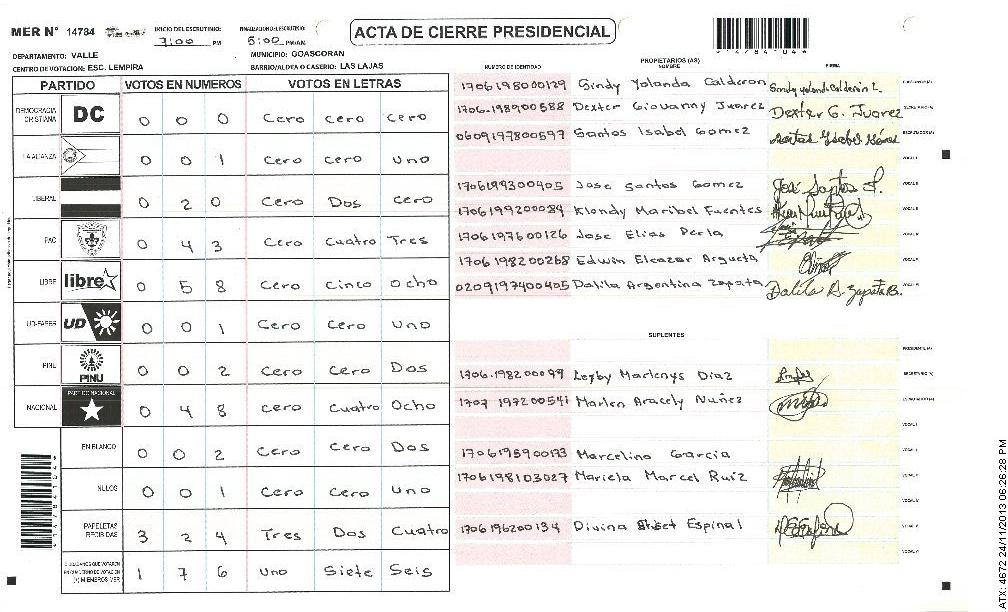 MER N° 14784 INICIO DEL ESCRUTINIO: 7:00 PM FINALIZACION ESCRUTINIO: 8:00 PM/AM
ACTA DE CIERRE PRESIDENCIAL
DEPARTAMENTO: VALLE MUNICIPIO: GOASCORAN
CENTRO DE VOTACION: ESC. LEMPIRA BARRIO/ALDEA O CASERIO: LAS LAJAS
PARTIDO VOTOS EN NUMEROS VOTOS EN LETRAS
DEMOCRACIA CRISTIANA DC 0 0 0 Cero Cero Cero
LA ALIANZA 0 0 1 Cero Cero Uno
LIBERAL 0 2 0 Cero Dos Cero
PAC 0 4 3 Cero Cuatro Tres
LIBRE libre 0 5 8 Cero Cinco Ocho
UD-FAPER UD 0 0 1 Cero Cero Uno
PINU PINU 0 0 2 Cero Cero Dos
NACIONAL PARTIDO NACIONAL 0 4 8 Cero Cuatro Ocho
EN BLANCO 0 0 2 Cero Cero Dos
NULOS 0 0 1 Cero Cero Uno
PAPELETAS RECIBIDAS 3 2 4 Tres Dos Cuatro
CIUDADANOS QUE VOTARON EN CUADERNO DE VOTACION (+) MIEMBROS MER 1 7 6 Uno Siete Seis
PROPIETARIOS (AS)
NUMERO DE IDENTIDAD NOMBRE FIRMA
1706198000129 Sindy Yolanda Calderon
1706-198900588 Dexter Giovanny Juarez Dexter G. Juarez
0609197800597 Santos Isabel Gomez
1706199300405 Jose Santos Gomez
1706199200084 Klendy Maribel Fuentes
1706197600126 Jose Elias Perla
1706198200268 Edwin Eleazar Argueta
0209197400405 Dalila Argentina Zapata Dalila A. Zapata B.
SUPLENTES
1706-198200099 Lesby Marlenys Diaz
1707 197200541 Marlen Aracely Nuñez
1706195900173 Marcelino Garcia
1706198103027 Mariela Marcel Ruiz
1706196200134 Divina Espinal
ATX: 4672 24/11/2013 06:26:28 PM